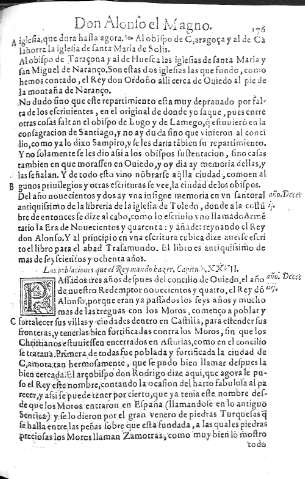 Don Alonso el Magno.
176
A iglesia, que dura hasta agora. Al obispo de Çaragoça y al de Ca
lahorra la iglesia de santa Maria de Solis.
Al obispo de Taraçona y al de Huesca las iglesias de santa Maria y
san Miguel de Naranço. Son estas dos iglesias las que fundo, como
hemos contado, el Rey don Ordoño alli cerca de Ouiedo al pie de
la montaña de Naranço.
No dudo sino que este repartimiento esta muy deprauado por fal-
ta de los escriuientes, en el original de donde yo saque, pues entre
otras cosas falta en el obispo de Lugo y de Lamego, que estuuierō en la
consagracion de Santiago, y no ay duda sino que vinieron al conci
lio, como ya lo dixo Sampiro, y se les daria tābien su repartimiento.
Y no solamente se les dio assi a los obispos sustentacion, sino casas
tambien en que morassen en Ouiedo, y oy dia ay memoria dellas, y
las señalan. Y de todo esto vino nōbrarse aq̃lla ciudad, como en al
B gunos priuilegios y otras escrituras se vee, la ciudad de los obispos.
Del año nouecientos y dos ay vna insigne memoria en vn santoral
antiquissimo de la libreria de la iglesia de Toledo, donde a la
bre de entonces se dize al cabo, como lo escriuio vno llamado Armē
tario la Era de Nouecientos y quarenta: y añade: reynando el Rey
don Alonso. Y al principio en vna escritura cubica dize auerse escri
to el libro para el abad Trasamundo. El libro es antiquissimo de
mas de seyscientos y ochenta años.
Las poblaciones que el Rey mando hazer. Capitu. XXVII.
PAssados tres años despues del concilio de Ouiedo, el año
de nuestro Redemptor nouecientos y quatro, el Rey dō
Alonso, porque eran ya passados los seys años y mucho
mas de las treguas con los Moros, començo a poblar y
C fortalecer sus villas y ciudades dentro en Castilla, para estender sus
fronteras, y tenerlas bien fortificadas contra los Moros, sin que los
Christianos estuuiessen encerrados en Asturias, como en el concilio
se trataua. Primera de todas fue poblada y fortificada la ciudad de
Çamora, tan hermosamente, que se pudo bien llamar despues la
bien cercada. El arçobispo don Rodrigo dize aqui, que agora le pu-
so el Rey este nombre, contando la ocasion del harto fabulosa al pa
recer, y assi se puede tener por cierto, que ya tenia este nombre des-
de que los Moros entraron en España (llamandole en lo antiguo
Sentica) y se lo dieron por el gran venero de piedras Turquesas q̃
se halla entre las peñas sobre que esta fundada, a las quales piedras
preciosas los Moros llaman Zamotras, como muy bien lo mostro
toda